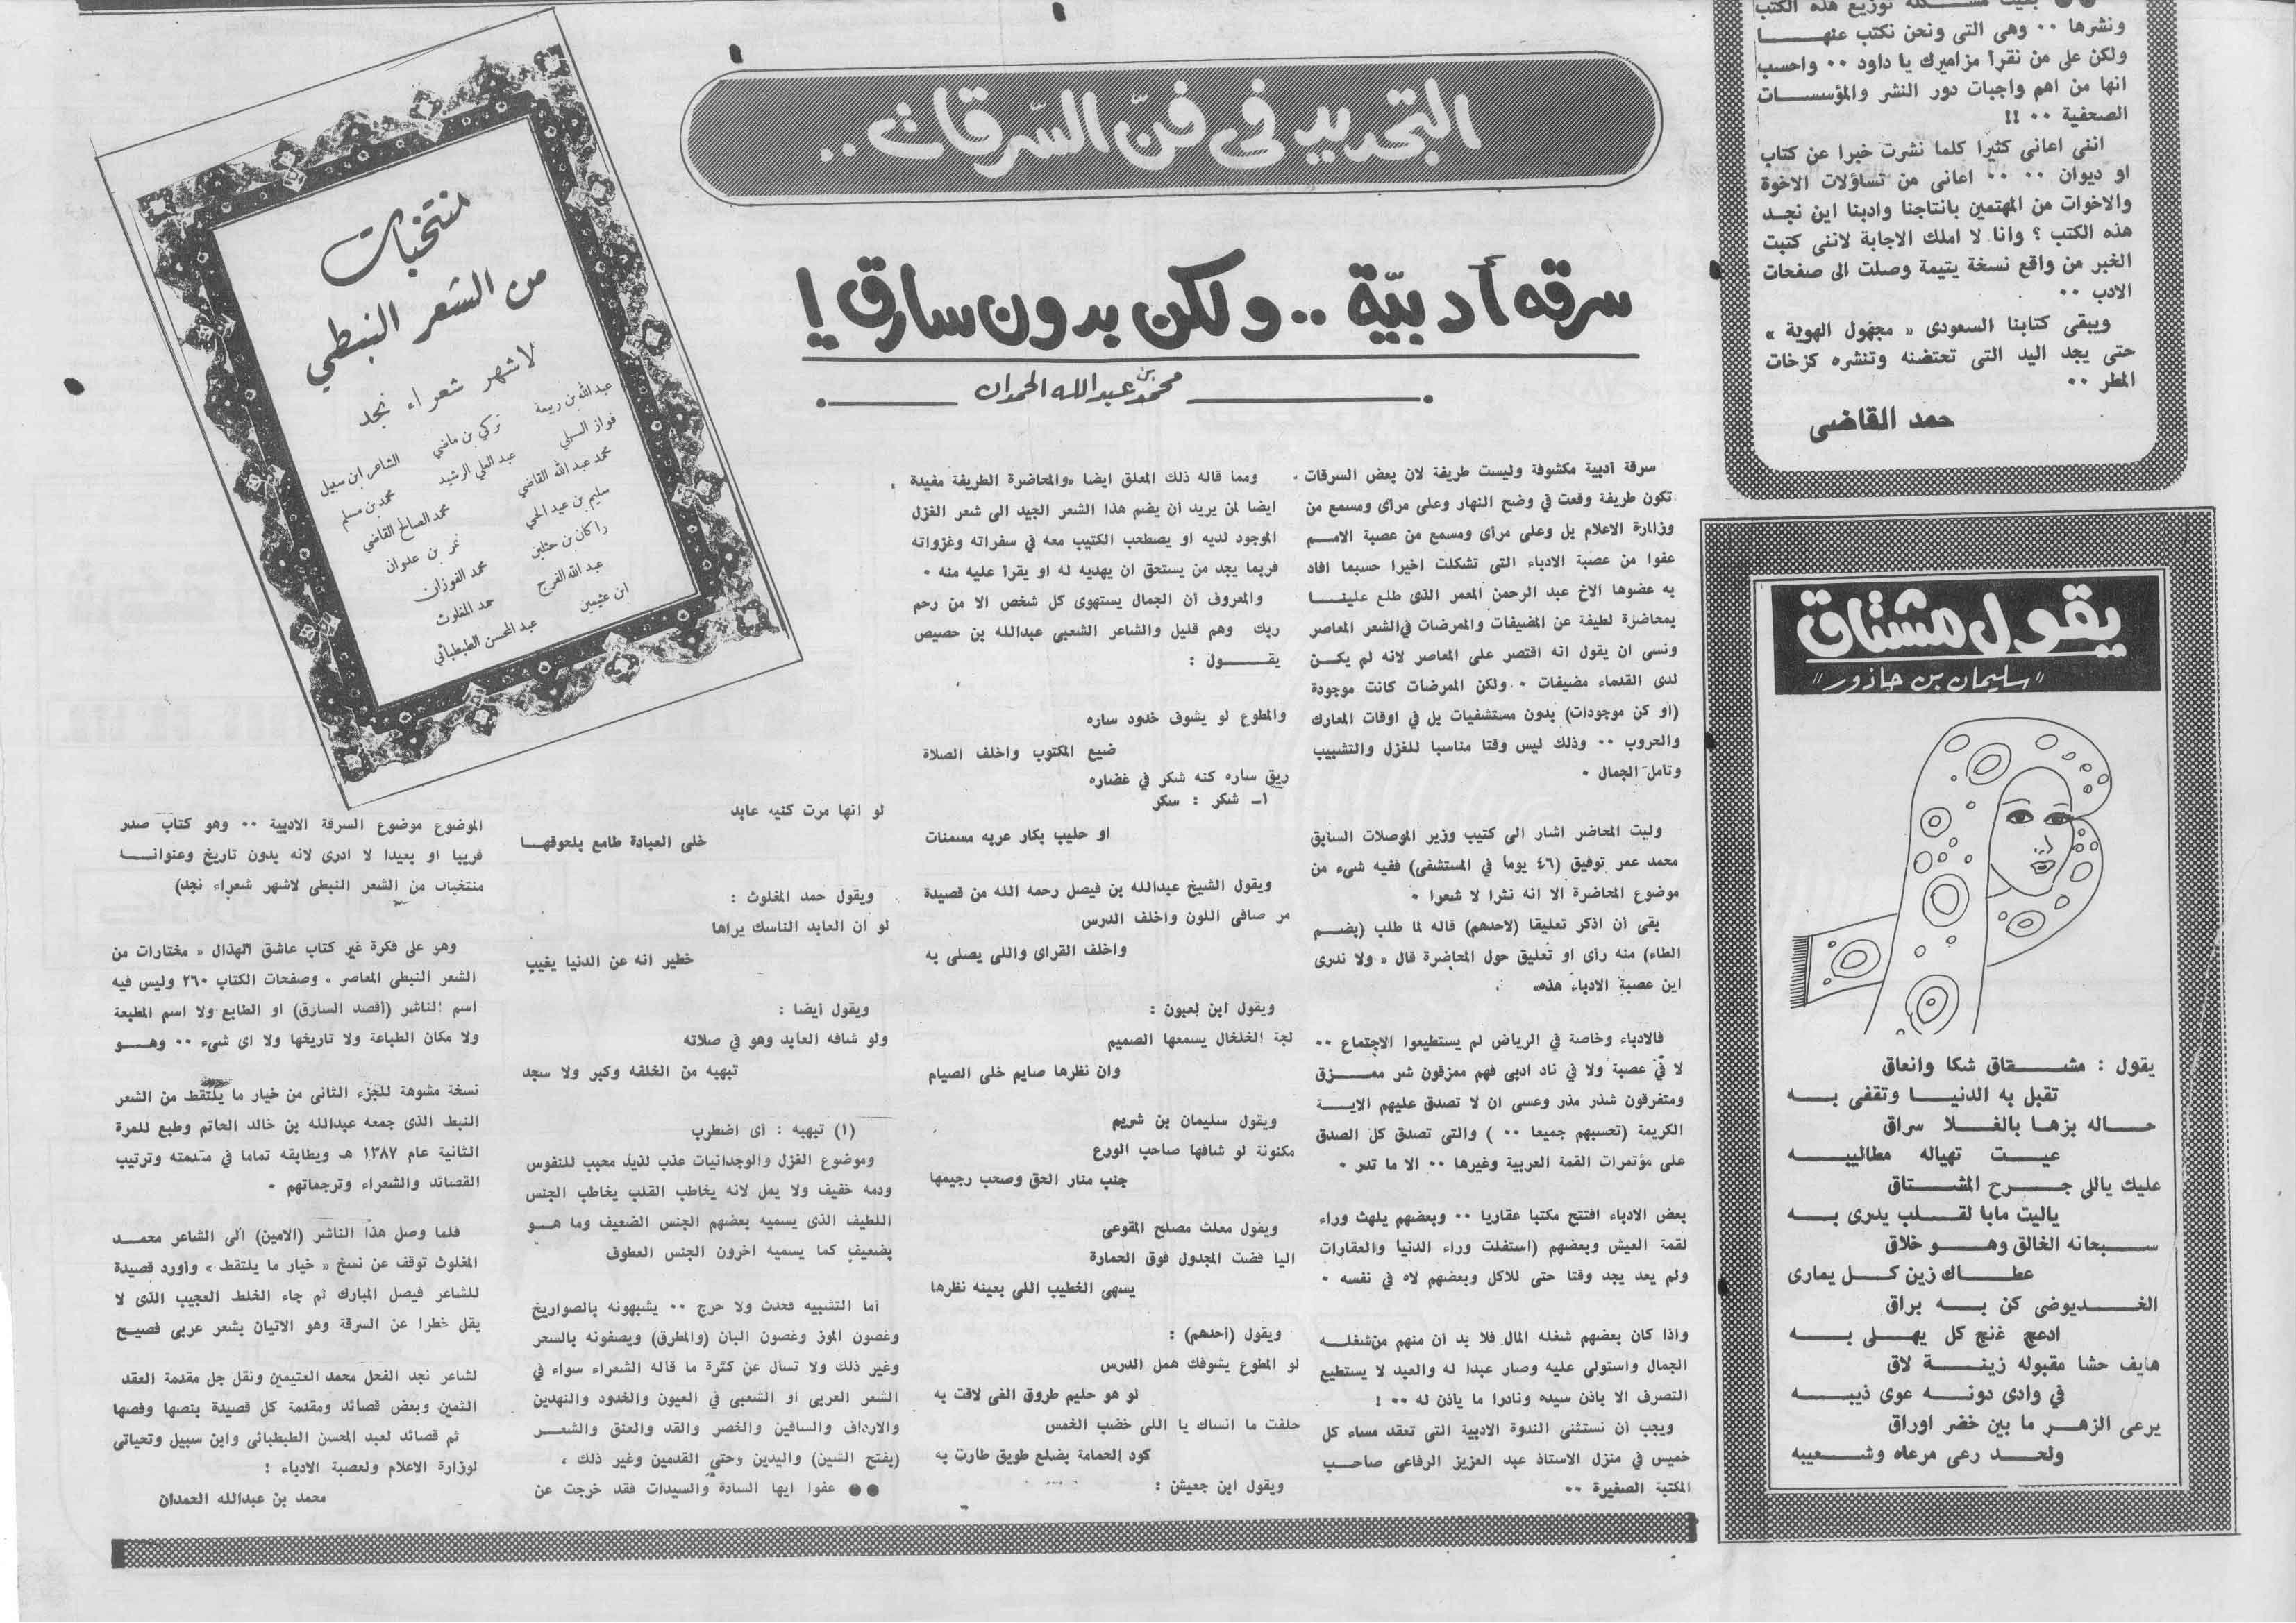 بقيت مشكلة توزيع هذه الكتب
ونشرها ٠٠ وهى التى ونحن نكتب عنهـــا
ولكن على من نقرأ مزاميرك يا داود ٠٠ واحسب
انها من اهم واجبات دور النشر والمؤسسات
الصحفية ٠٠ !!
اننى اعانى كثيرا كلما نشرت خبرا عن كتاب
او ديوان ٠٠ ٠٠ اعانى من تساؤلات الاخوة
والاخوات من المهتمين بانتاجنا وادبنا اين نجـد
هذه الكتب ؟ وانا لا املك الاجابة لاننى كتبت
الخبر من واقع نسخة يتيمة وصلت الى صفحات
الادب ٠٠
ويبقى كتابنا السعودى « مجهول الهوية »
حتى يجد اليد التى تحتضنه وتنشره كزخات
المطر ٠٠
حمد القاضى
يقول مشتاق
"سليمان بن جاذور"
يقول : مشــتاق شكا وانعاق
تقبل به الدنيــا وتقفى بــه
حــاله بزها بالغــلا سراق
عيــت تهياله مطاليبــه
عليك ياللى جــرح المشــتاق
ياليت مابا لقــلب يدرى بــه
ســبحانه الخالق وهــو خلاق
عطــاك زين كــل يمارى
الخــديوضى كن بــه براق
ادعج غنج كل يهــلى بــه
هايف حشا مقبوله زينــة لاق
في وادى دونــه عوى ذيبــه
يرعى الزهــر ما بين خضر اوراق
ولحــد رعى مرعاه وشــعيبه
التجديد فى فنّ السّرقات ..
سرقه أدبيّة .. ولكن بدون سارق !
محمد بن عبدالله الحمدان
سرقة أدبية مكشوفة وليست طريفة لان بعض السرقات
تكون طريفة وقعت في وضح النهار وعلى مرأى ومسمع من
وزارة الاعلام بل وعلى مرأى ومسمع من عصبة الامــم
عفوا من عصبة الادباء التى تشكلت اخيرا حسبما افاد
به عضوها الاخ عبد الرحمن المعمر الذى طلع علينــا
بمحاضرة لطيفة عن المضيفات والممرضات في الشعر المعاصر
ونسى ان يقول انه اقتصر على المعاصر لانه لم يكــن
لدى القدماء مضيفات ٠ ولكن الممرضات كانت موجودة
(أو كن موجودات) بدون مستشفيات بل في اوقات المعارك
والحروب ٠٠ وذلك ليس وقتا مناسبا للغزل والتشبيب
وتأمل الجمال ٠
وليت المحاضر اشار الى كتيب وزير المواصلات السابق
محمد عمر توفيق (٤٦ يوما في المستشفى) ففيه شىء من
موضوع المحاضرة الا انه نثرا لا شعرا ٠
بقى أن اذكر تعليقا (لاحدهم) قاله لما طلب (بضــم
الطاء) منه رأى او تعليق حول المحاضرة قال « ولا ندرى
اين عصبة الادباء هذه»
فالادباء وخاصة في الرياض لم يستطيعوا الاجتماع ٠٠
لا في عصبة ولا في ناد ادبى فهم ممزقون شر ممــزق
ومتفرقون شذر مذر وعسى ان لا تصدق عليهم الايــة
الكريمة (تحسبهم جميعا ٠٠ ) والتى تصدق كل الصدق
على مؤتمرات القمة العربية وغيرها ٠٠ الا ما ندر ٠
بعض الادباء افتتح مكتبا عقاريا ٠٠ وبعضهم يلهث وراء
لقمة العيش وبعضهم (استفلت وراء الدنيا والعقارات
ولم يعد يجد وقتا حتى للاكل وبعضهم لاه في نفسه ٠
واذا كان بعضهم شغله المال فلا بد أن منهم من شغلــه
الجمال واستولى عليه وصار عبدا له والعبد لا يستطيع
التصرف الا باذن سيده ونادرا ما ياذن له ٠٠ !
ويجب أن نستثنى الندوة الادبية التى تعقد مساء كل
خميس في منزل الاستاذ عبد العزيز الرفاعى صاحــب
المكتبة الصغيرة ٠٠
ومما قاله ذلك المعلق ايضا «والمحاضرة الطريفة مفيدة
ايضا لمن يريد أن يضم هذا الشعر الجيد الى شعر الغزل
الموجود لديه او يصطحب الكتيب معه في سفراته وغزواته
فربما يجد من يستحق ان يهديه له او يقرأ عليه منه ٠
والمعروف أن الجمال يستهوى كل شخص الا من رحم
ربك وهم قليل والشاعر الشعبى عبدالله بن حصيص
يقــول :
والمطوع لو يشوف خدود ساره
ضيع المكتوب واخلف الصلاة
ريق ساره كنه شكر في غضاره
١ــ شكر : سكر
او حليب بكار عربه مسمنات
ويقول الشيخ عبدالله بن فيصل رحمه الله من قصيدة
مر صافى اللون واخلف الدرس
واخلف القراى واللى يصلى به
ويقول ابن لعبون :
لجة الخلخال يسمعها الصميم
وان نظرها صايم خلى الصيام
ويقول سليمان بن شريم
مكنونة لو شافها صاحب الورع
جنب منار الحق وصحب رجيمها
ويقول معلث مصلح المقوعى
اليا فضت المجدول فوق الحمارة
يسهى الخطيب اللى بعينه نظرها
ويقول (أحدهم) :
لو المطوع يشوفك همل الدرس
لو هو حليم طروق الغى لاقت به
حلفت ما انساك يا اللى خضب الخمس
كود الحمامة بضلع طويق طارت به
ويقول ابن جعيثن :
لو انها مرت كنيه عابد
خلى العبادة طامع بلحوقهــا
ويقول حمد المغلوث :
لو أن العابد الناسك يراها
خطير انه عن الدنيا يغيب
ويقول أيضا :
ولو شافه العابد وهو في صلاته
تبهبه من الخلفه وكبر ولا سجد
(١) تبهبه : أى اضطرب
وموضوع الغزل والوجدانيات عذب لذيذ محبب للنفوس
ودمه خفيف ولا يمل لانه يخاطب القلب يخاطب الجنس
اللطيف الذى يسميه بعضهم الجنس الضعيف وما هــو
بضعيف كما يسميه اخرون الجنس العطوف
أما التشبيه فحدث ولا حرج ٠٠ يشبهونه بالصواريخ
وغصون الموز وغصون البان (والمطرق) ويصفونه بالسحر
وغير ذلك ولا تسأل عن كثرة ما قاله الشعراء سواء في
الشعر العربى او الشعبى في العيون والخدود والنهدين
والارداف والساقين والخصر والقد والعنق والشعــر
(بفتح الشين) واليدين وحتى القدمين وغير ذلك ،
●● عفوا ايها السادة والسيدات فقد خرجت عن
الموضوع موضوع السرقة الادبية ٠٠ وهو كتاب صدر
قريبا او بعيدا لا ادرى لانه بدون تاريخ وعنوانــا
منتخبات من الشعر النبطى لاشهر شعراء نجد)
وهو على فكرة غير كتاب عاشق الهذال « مختارات من
الشعر النبطى المعاصر » وصفحات الكتاب ٢٦٠ وليس فيه
اسم الناشر (أقصد السارق) او الطابع ولا اسم المطبعة
ولا مكان الطباعة ولا تاريخها ولا اى شىء ٠٠ وهــو
نسخة مشوهة للجزء الثانى من خيار ما يلتقط من الشعر
النبط الذى جمعه عبدالله بن خالد الحاتم وطبع للمرة
الثانية عام ١٣٨٧ هـ ويطابقه تماما في مقدمته وترتيب
القصائد والشعراء وترجماتهم ٠
فلما وصل هذا الناشر (الامين) الى الشاعر محمــد
المغلوث توقف عن نسخ « خيار ما يلتقط » وأورد قصيدة
للشاعر فيصل المبارك ثم جاء الخلط العجيب الذى لا
يقل خطرا عن السرقة وهو الاتيان بشعر عربى فصيح
لشاعر نجد الفحل محمد العثيمين ونقل جل مقدمة العقد
الثمين وبعض قصائد ومقدمة كل قصيدة بنصها وفصها
ثم قصائد لعبد المحسن الطبطبائى وابن سبيل وتحياتى
لوزارة الاعلام ولعصبة الادباء !
محمد بن عبدالله الحمدان
منتخبات
من الشعر النبطي
لاشهر شعراء نجد
عبدالله بن ربيعة تركي بن ماضي الشاعر ابن سبيل
فواز السهلي عبد العلي الرشيد محمد بن مسلم
محمد عبد الله القاضي محمد الصالح القاضي
سليم بن عبد الحي نمر بن عدوان
راكان بن حثلين محمد الفوزان
عبد الله الفرج حمد المغلوث
ابن عثيمين عبد المحسن الطبطبائي